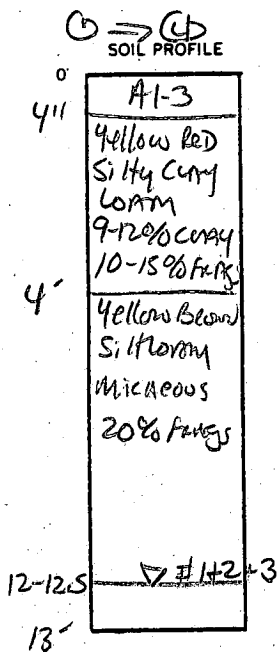 ① ⇒ ④
SOIL PROFILE
0'
A1-3
4"
Yellow Red
Silty Clay
Loam
9-12% Clay
10-15% Frags
4'
Yellow Brown
Silt Loam
Micaeous
20% Frags
12-12.5 ▽ #1+2+3
13'